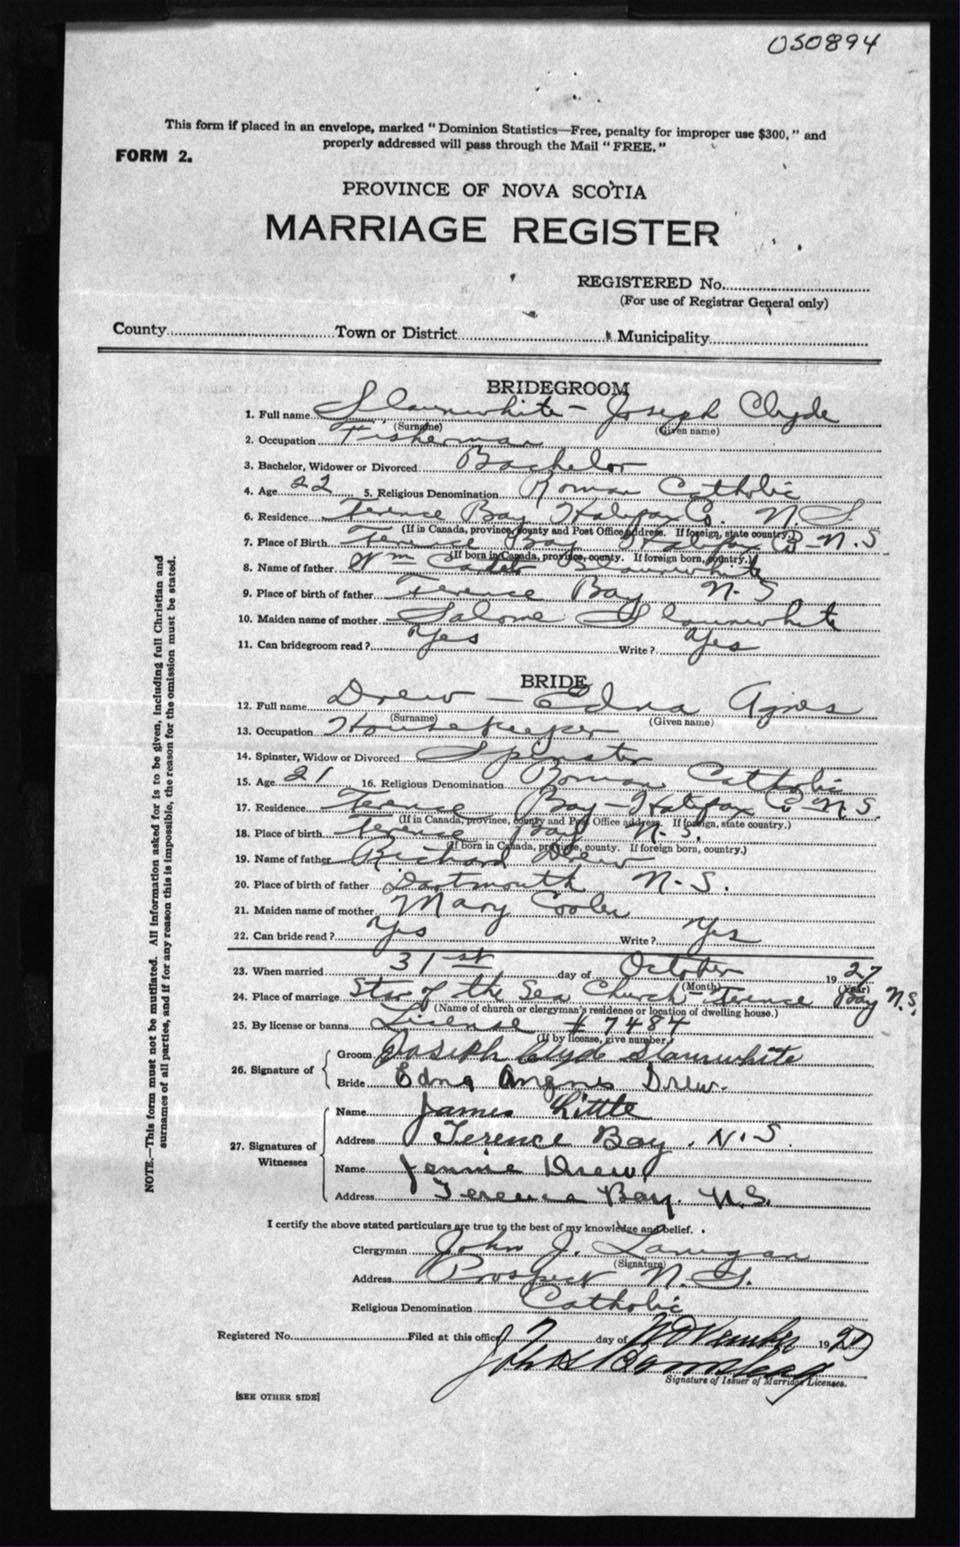 050894
This form if placed in an envelope, marked "Dominion Statistics—Free, penalty for improper use $300," and
properly addressed will pass through the Mail "FREE."
FORM 2.
PROVINCE OF NOVA SCOTIA
MARRIAGE REGISTER
REGISTERED No.
(For use of Registrar General only)
County Town or District Municipality
BRIDEGROOM
1. Full name Slaunwhite – Joseph Clyde
(Surname) (Given name)
2. Occupation Fisherman
3. Bachelor, Widower or Divorced Bachelor
4. Age 22 5. Religious Denomination Roman Catholic
6. Residence Terence Bay Halifax Co. N.S.
(If in Canada, province, county and Post Office address. If foreign, state country.)
7. Place of Birth Terence Bay Halifax Co – N.S
(If born in Canada, province, county. If foreign born, country.)
8. Name of father Wm Slaunwhite
9. Place of birth of father Terence Bay N.S
10. Maiden name of mother Salome Slaunwhite
11. Can bridegroom read? Yes Write? Yes
BRIDE
12. Full name Drew – Edna Agnes
(Surname) (Given name)
13. Occupation Housekeeper
14. Spinster, Widow or Divorced Spinster
15. Age 21 16. Religious Denomination Roman Catholic
17. Residence Terence Bay – Halifax Co – N.S.
(If in Canada, province, county and Post Office address. If foreign, state country.)
18. Place of birth Terence Bay N.S.
(If born in Canada, province, county. If foreign born, country.)
19. Name of father Richard Drew
20. Place of birth of father Dartmouth N.S.
21. Maiden name of mother Mary Cooler
22. Can bride read? Yes Write? Yes
23. When married 31st day of October 1927
(Month) (Year)
24. Place of marriage Star of the Sea Church – Terence Bay N.S.
(Name of church or clergyman's residence or location of dwelling house.)
25. By license or banns License #7484
(If by license, give number.)
26. Signature of Groom Joseph Clyde Slaunwhite
Bride Edna Angnes Drew.
27. Signatures of Witnesses Name James Little
Address Terence Bay. N.S.
Name Jennie Drew
Address Terence Bay. N.S.
I certify the above stated particulars are true to the best of my knowledge and belief.
Clergyman John J. Lanigan
(Signature)
Address Prospect N.S.
Religious Denomination Catholic
Registered No. Filed at this office 7 day of November 1927
Signature of Issuer of Marriage Licenses.
[SEE OTHER SIDE]
NOTE.—This form must not be mutilated. All information asked for is to be given, including full Christian and
surnames of all parties, and if for any reason this is impossible, the reason for the omission must be stated.